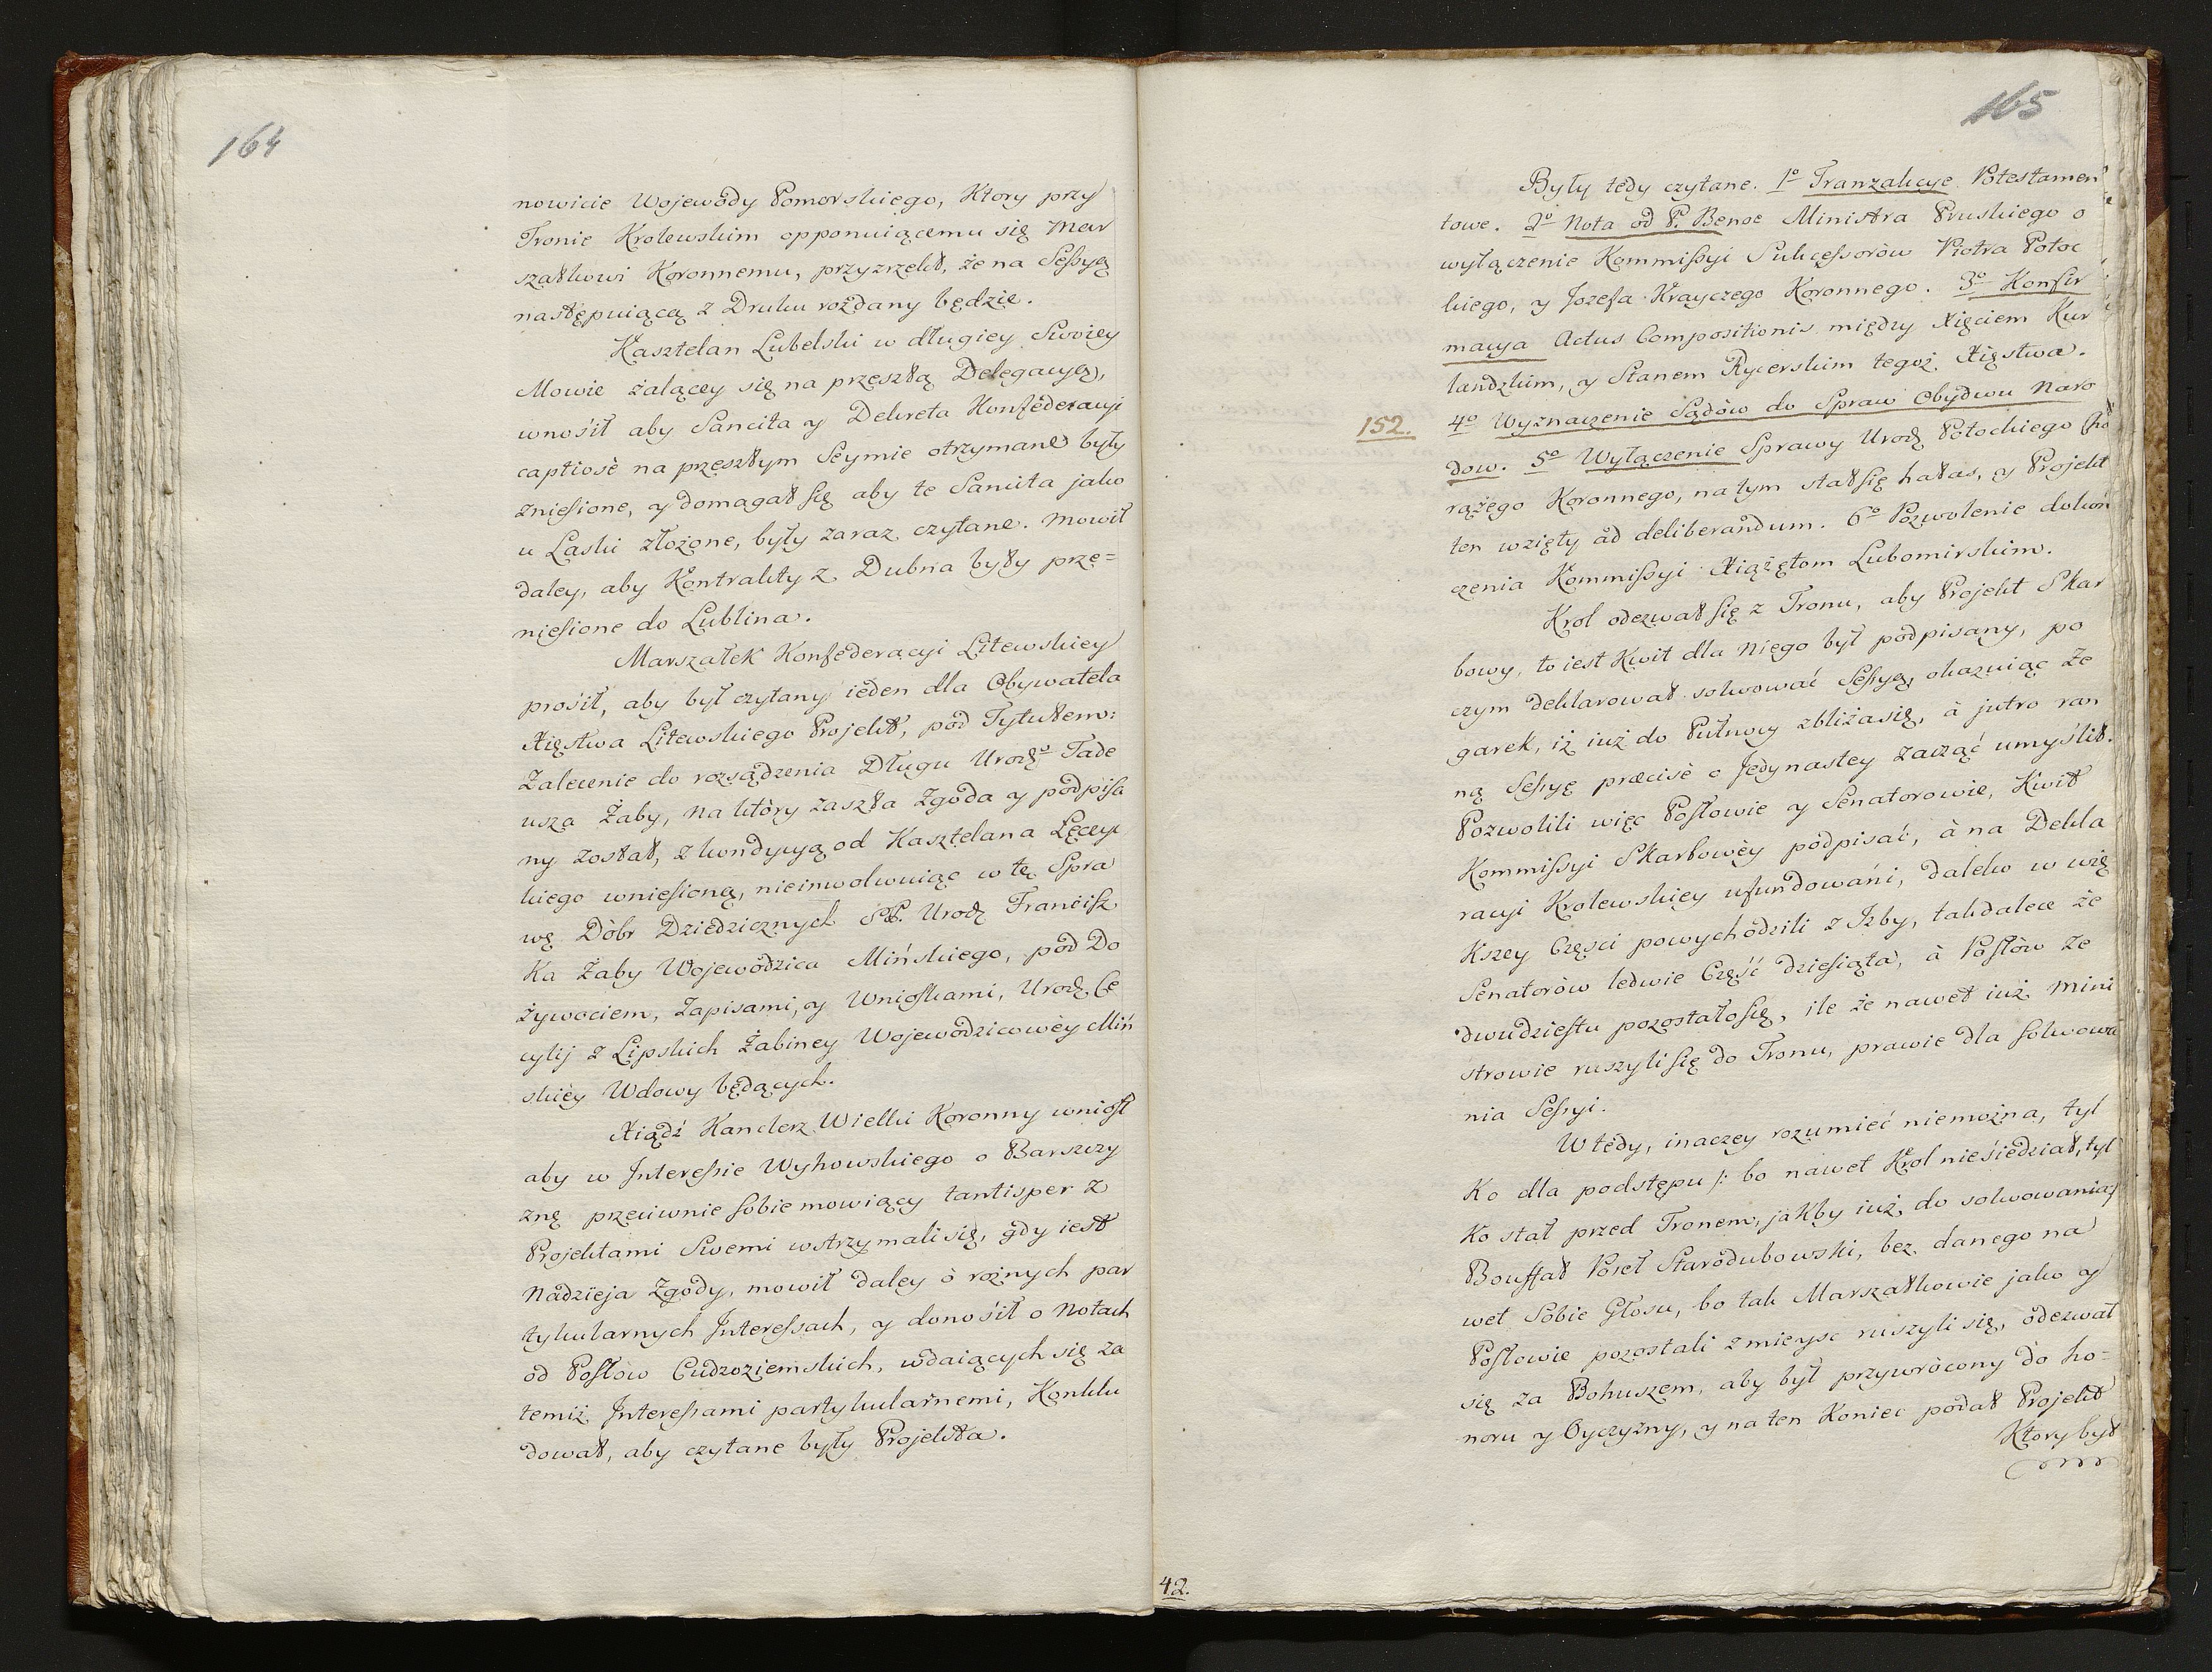 164
nowicie Wojewody Pomorskiego, Ktory przy
Tronie Krolewskim opponuiącemu się Mar
szałkowi Koronnemu, przyrzekł, że na Sessyą
następuiącą z Druku rozdany będzie.
Kasztelan Lubelski w długiey Swoiey
Mowie żalącey się na przeszłą Delegacyą,
wnosił aby Sancita y Dekreta Konfederacyi
captiosè na przeszłym Seymie otrzymane były
zniesione, y domagał się aby te Sancita jako
u Laski złożone, były zaraz czytane. Mowił
daley, aby Kontrakty z Dubna były prze=
niesione do Lublina.
Marszałek Konfederacyi Litewskiey
prosił, aby był czytany ieden dla Obywatela
Xięstwa Litewskiego Projekt, pod Tytułem:
Zalecenie do rozsądzenia Długu Urodz⁰ Tade
usza Żaby, na ktòry zaszła Zgoda y podpisa
ny został, z kondycyą od Kasztelana Łęczyc
kiego wniesioną, nieinwolwuiąc w tę Spra
wę Dòbr Dziedzicznych ŚP. Urodz Francisz
Ka Żaby Wojewodzica Mińskiego, pod Do
żywociem, Zapisami, y Wnioskami, Urodz. Ce
cylij z Lipskich Żabiney Wojewodzicowèy Miń
skièy Wdowy będących.
Xiądź Kanclerz Wielki Koronny wniosł
aby w Interessie Wyhowskiego o Barszczy
znę przeciwnie sobie mowiący tantisper z
Projektami Swemi wstrzymali się, gdy iest
Nadzieja Zgody, mowił daley ò roznych par
tykularnych Interessach, y donosił o Notach
od Posłow Cudzoziemskich, wdaiących się za
temiż Interessami partykularnemi, Konklu
dował, aby czytane były Projekta.
165
Były tedy czytane. 1º Tranzakcye Potestamen
towe. 2º Nota od P. Benoe Ministra Pruskiego o
wyłączenie Kommissyi Sukcessoròw Piotra Potoc
kiego, y Jozefa Krayczego Koronnego. 3º Konfir
macya Actus Compositionis między Xięciem Kur
landzkim, y Stanem Rycerskim tegoż Xięstwa.
152. 4º Wyznaczenie Sądòw do Spraw Obydwu Naro
dow. 5º Wyłączenie Sprawy Urodz Potockiego Cho
rążego Koronnego, na tym stał się hałas, y Projekt
ten wzięty ad deliberandum. 6º Pozwolenie dokoń
czenia Kommissyi Xiążętom Lubomirskim.
Krol odezwał się z Tronu, aby Projekt Skar
bowy, to iest Kwit dla Niego był podpisany, po
czym deklarował solwować Sessyą, okazuiąc Ze
garek, iż iuż do Pułnocy zbliża się, à jutro ran
ną Sessyę præcisè o Jedynastey zacząć umyślił.
Pozwolili więc Posłowie y Senatorowie, Kwit
Kommissyi Skarbowèy podpisać, à na Dekla
racyi Krolewskiey ufundowani, daleko w wię
Kszey Częsci powychodzili z Izby, takdalece że
Senatoròw ledwie Część dziesiąta, à Posłòw Ze
dwudziestu pozostało się, ile że nawet iuż Mini
strowie ruszyli się do Tronu, prawie dla solwowa
nia Sessyi.
Wtédy, inaczey rozumieć niemożna, tyl
Ko dla podstępu /: bo nawet Krol niesiedział, tyl
Ko stał przed Tronem, jakby iuż do solwowania:/
Bouffał Poseł Starodubowski, bez danego na
wet Sobie Głosu, bo tak Marszałkowie jako y
Posłowie pozostali z mieysc ruszyli się, odezwał
się za Bohuszem, aby był przywròcony do ho=
noru y Oyczyzny, y na ten Koniec podał Projekt
Ktory był
42.